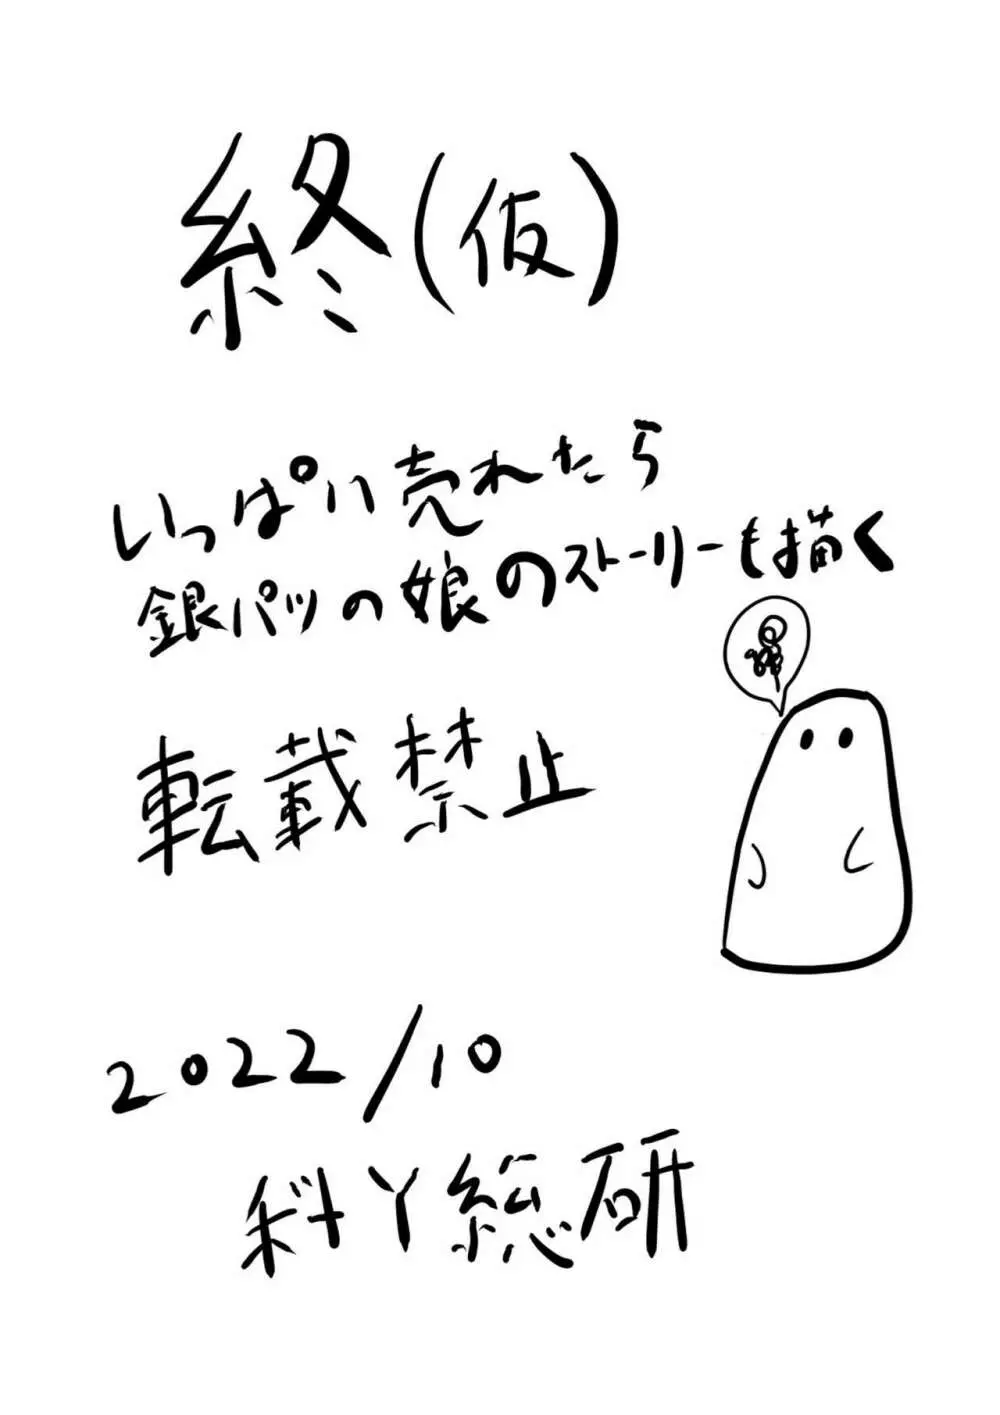 終(仮)
いっぱい売れたら
銀パツの娘のストーリーも描く
転載禁止
2022/10
科丫総研